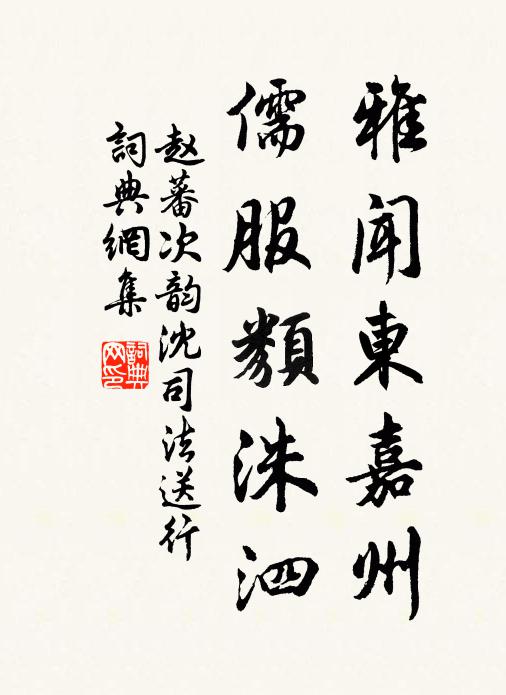 雅闻東嘉州
儒服類洙泗
赵蕃次韵沈司法送行
詞典網集
詞典网印